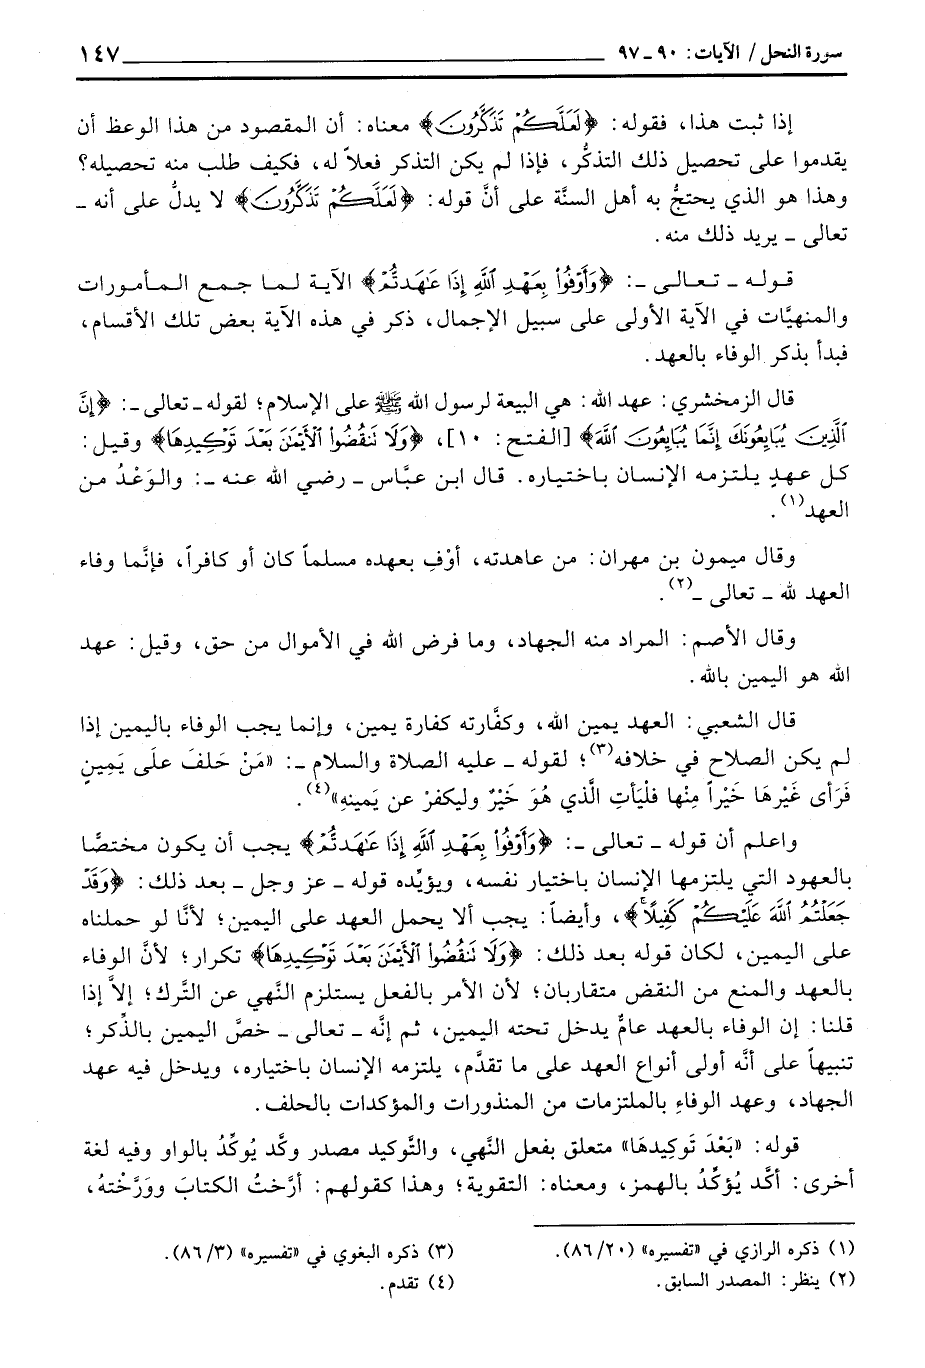 سورة النحل / الآيات: ٩٠ ـ ٩٧ ١٤٧
إذا ثبت هذا، فقوله: ﴿لَعَلَّكُمْ تَذَكَّرُونَ﴾ معناه: أن المقصود من هذا الوعظ أن
يقدموا على تحصيل ذلك التذكُّر، فإذا لم يكن التذكر فعلاً له، فكيف طلب منه تحصيله؟
وهذا هو الذي يحتجُّ به أهل السنَّة على أنَّ قوله: ﴿لَعَلَّكُمْ تَذَكَّرُونَ﴾ لا يدلُّ على أنه ـ
تعالى ـ يريد ذلك منه.
قوله ـ تعالى ـ: ﴿وَأَوْفُواْ بِعَهْدِ ٱللَّهِ إِذَا عَٰهَدتُّمْ﴾ الآية لما جمع المأمورات
والمنهيَّات في الآية الأولى على سبيل الإجمال، ذكر في هذه الآية بعض تلك الأقسام،
فبدأ بذكر الوفاء بالعهد.
قال الزمخشري: عهد الله: هي البيعة لرسول الله ﷺ على الإسلام؛ لقوله ـ تعالى ـ: ﴿إِنَّ
ٱلَّذِينَ يُبَايِعُونَكَ إِنَّمَا يُبَايِعُونَ ٱللَّهَ﴾ [الفتح: ١٠]، ﴿وَلَا نَنقُضُواْ ٱلْأَيْمَٰنَ بَعْدَ تَوْكِيدِهَا﴾ وقيل:
كل عهدٍ يلتزمه الإنسان باختياره. قال ابن عبَّاس ـ رضي الله عنه ـ: والوَعْدُ من
العهد(١).
وقال ميمون بن مهران: من عاهدته، أوْفِ بعهده مسلماً كان أو كافراً، فإنَّما وفاء
العهد لله ـ تعالى ـ(٢).
وقال الأصم: المراد منه الجهاد، وما فرض الله في الأموال من حق، وقيل: عهد
الله هو اليمين بالله.
قال الشعبي: العهد يمين الله، وكفَّارته كفارة يمين، وإنما يجب الوفاء باليمين إذا
لم يكن الصلاح في خلافه(٣)؛ لقوله ـ عليه الصلاة والسلام ـ: «مَنْ حَلفَ علَى يَمِينٍ
فَرَأى غَيْرهَا خَيْراً مِنْها فلْيَأتِ الَّذي هُوَ خَيْرٌ وليكفرْ عن يَمينهِ»(٤).
واعلم أن قوله ـ تعالى ـ: ﴿وَأَوْفُواْ بِعَهْدِ ٱللَّهِ إِذَا عَٰهَدتُّمْ﴾ يجب أن يكون مختصًّا
بالعهود التي يلتزمها الإنسان باختيار نفسه، ويؤيِّده قوله ـ عز وجل ـ بعد ذلك: ﴿وَقَدْ
جَعَلْتُمُ ٱللَّهَ عَلَيْكُمْ كَفِيلًا﴾، وأيضاً: يجب ألا يحمل العهد على اليمين؛ لأنَّا لو حملناه
على اليمين، لكان قوله بعد ذلك: ﴿وَلَا نَنقُضُواْ ٱلْأَيْمَٰنَ بَعْدَ تَوْكِيدِهَا﴾ تكرار؛ لأنَّ الوفاء
بالعهد والمنع من النقض متقاربان؛ لأن الأمر بالفعل يستلزم النَّهي عن التَّرك؛ إلاَّ إذا
قلنا: إن الوفاء بالعهد عامٌّ يدخل تحته اليمين، ثم إنَّه ـ تعالى ـ خصَّ اليمين بالذِّكر؛
تنبيهاً على أنَّه أولى أنواع العهد على ما تقدَّم، يلتزمه الإنسان باختياره، ويدخل فيه عهد
الجهاد، وعهد الوفاءِ بالملتزمات من المنذورات والمؤكدات بالحلف.
قوله: «بَعْدَ تَوكِيدهَا» متعلق بفعل النَّهي، والتَّوكيد مصدر وكَّد يُوكِّدُ بالواو وفيه لغة
أخرى: أكَّد يُؤكِّدُ بالهمز، ومعناه: التقوية؛ وهذا كقولهم: أرَّختُ الكتابَ وورَّخْتهُ،
(١) ذكره الرازي في «تفسيره» (٢٠/٨٦).
(٢) ينظر: المصدر السابق.
(٣) ذكره البغوي في «تفسيره» (٣/٨٦).
(٤) تقدم.